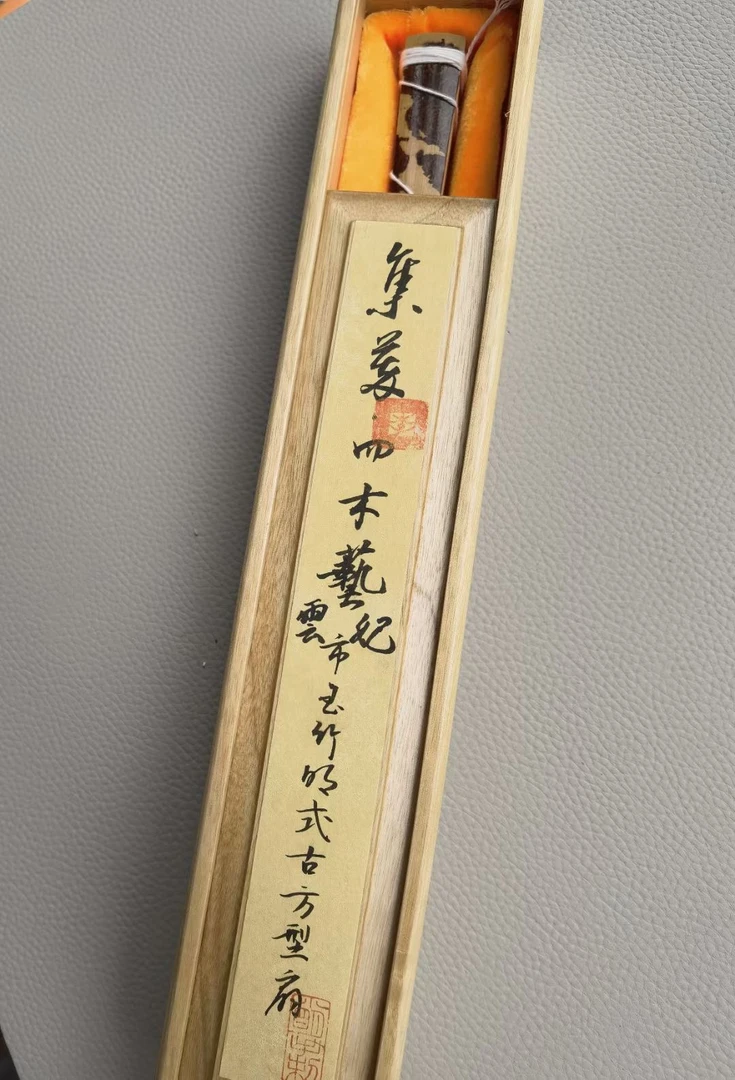 集四木藝
雲市玉竹明式古方型扇